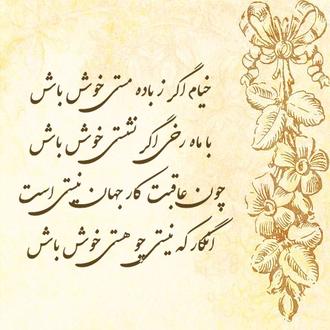 خیام اگر ز باده مستی خوش باش
با ماه رخی اگر نشستی خوش باش
چون عاقبت کار جهان نیستی است
انگار که نیستی چو هستی خوش باش